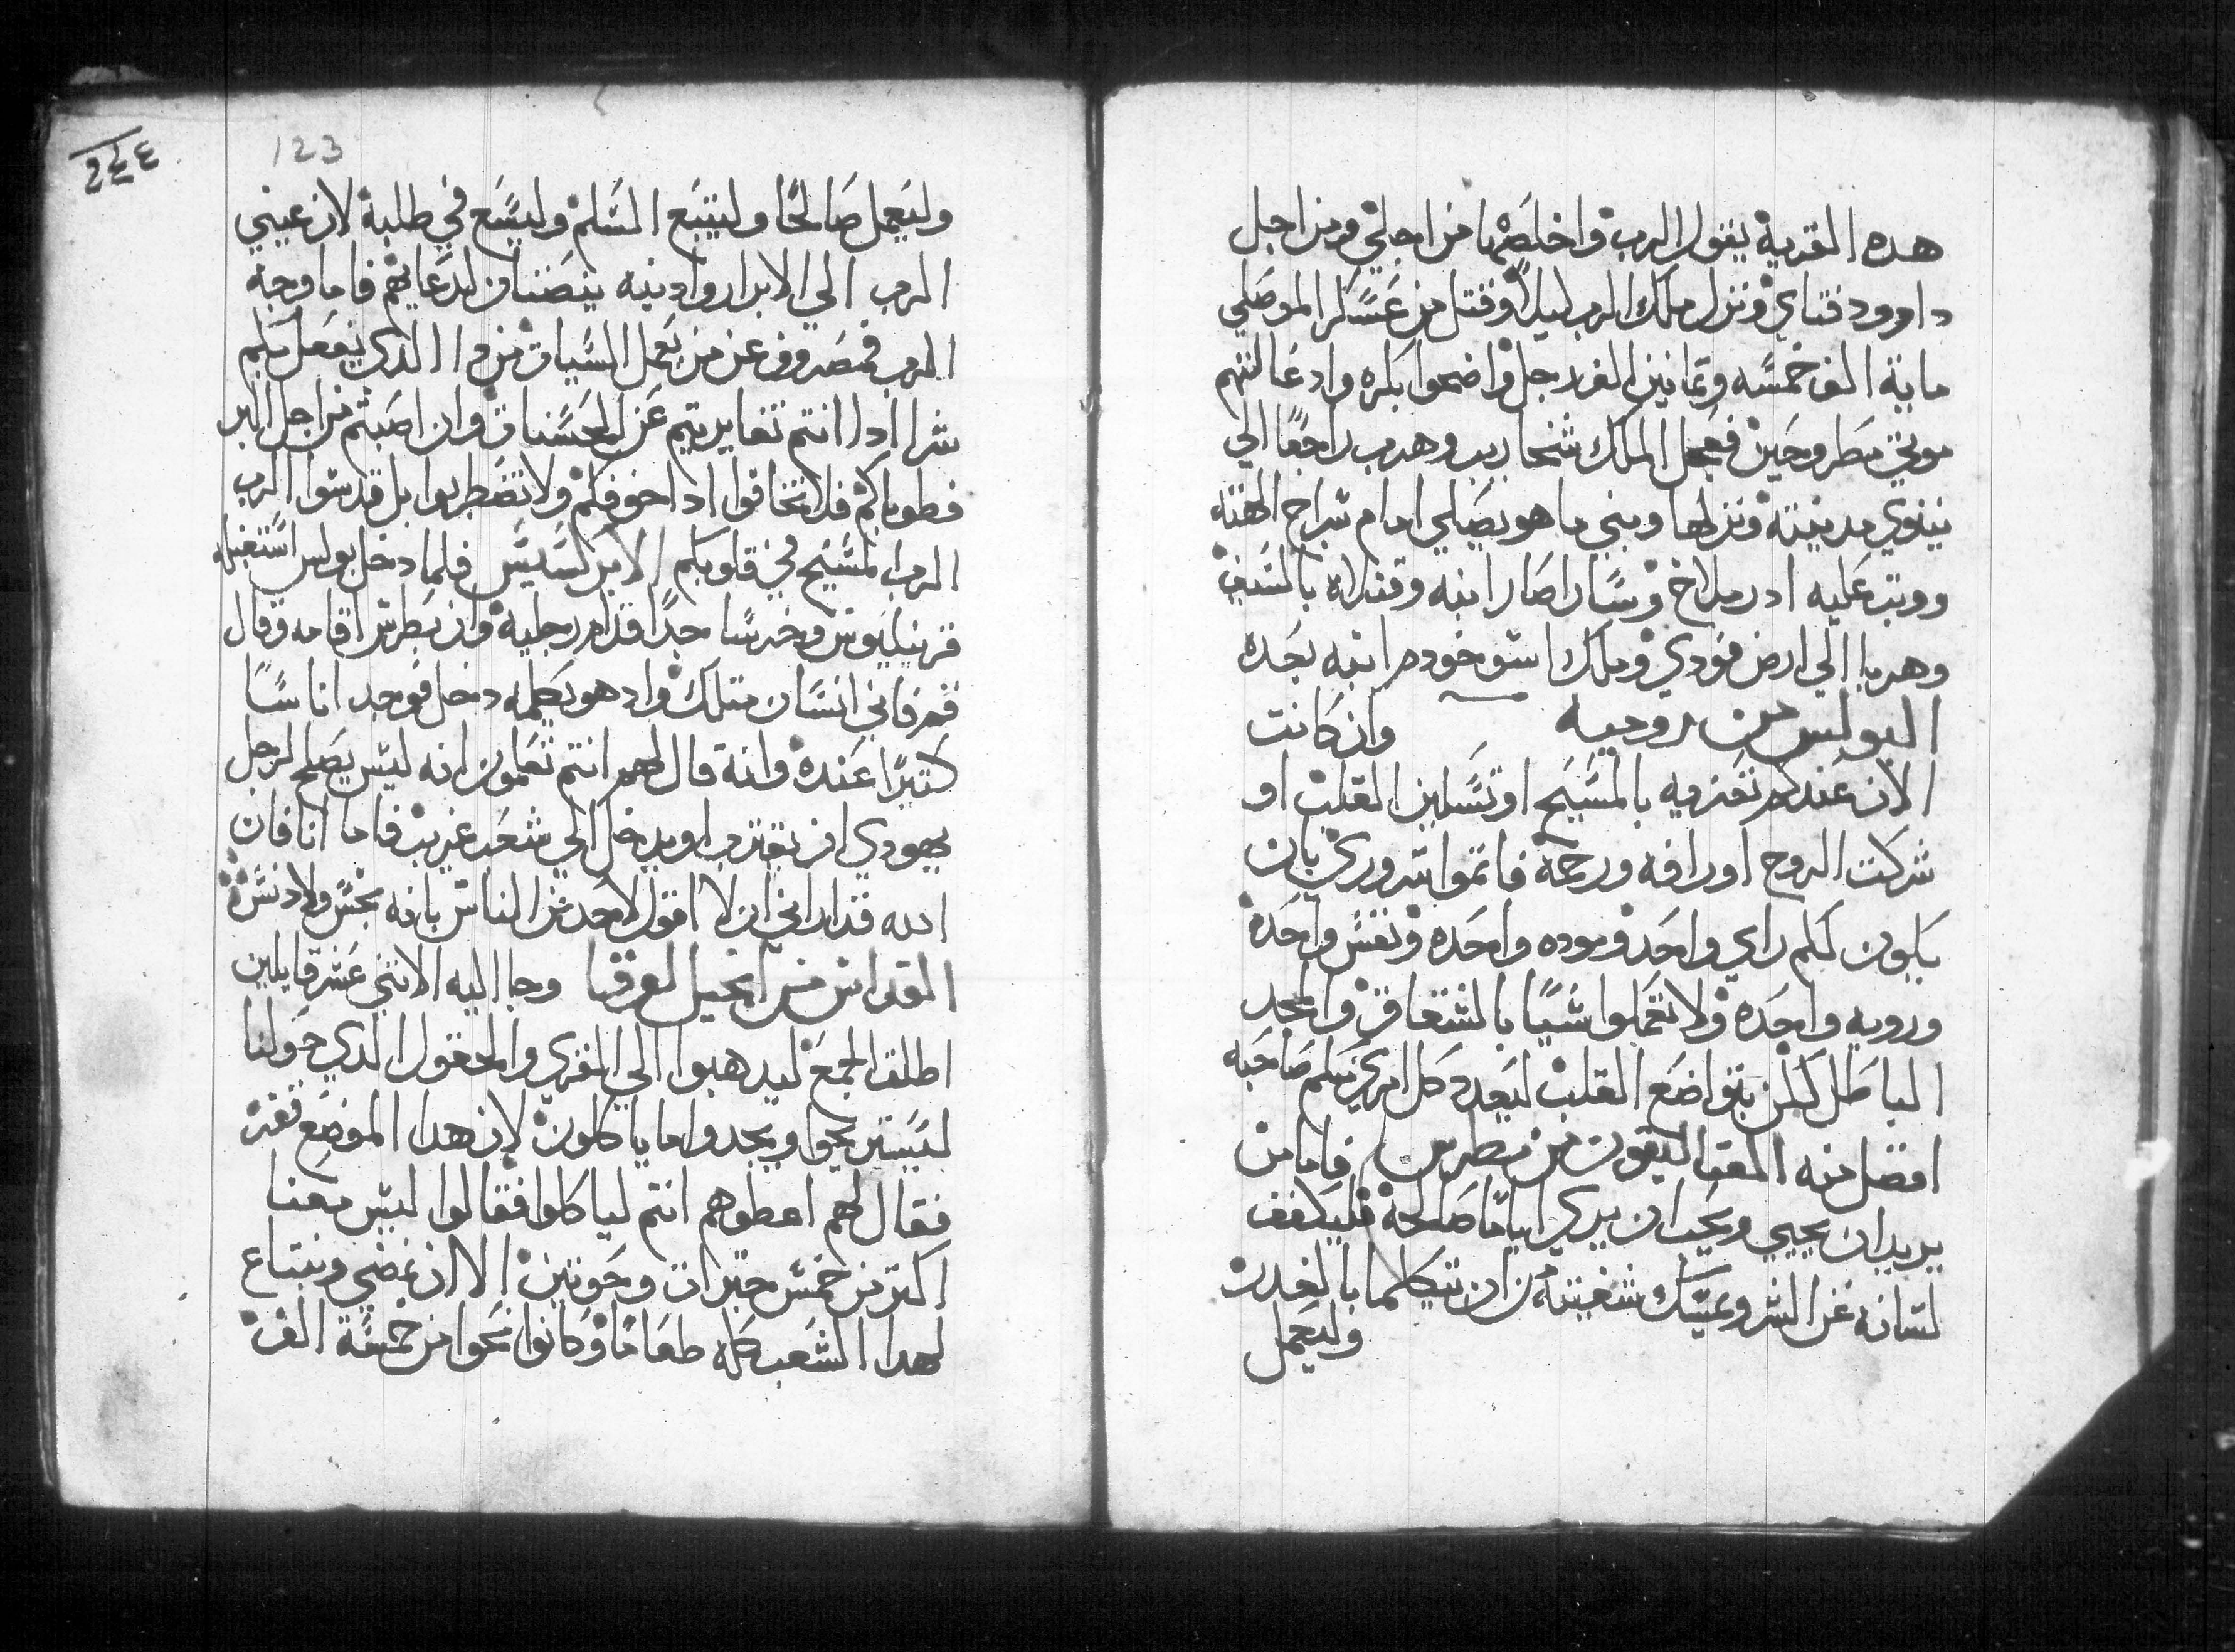 هده القرية يقول الرب واخلصها من اجلي ومن اجل
داوود فتاي ونزل ملاك الرب ليلا وقتل من عسكر الموصلي
ماية الف خمسه وتمانين الف رجل واضحوا بكره وادعالتهم
موتي مطروحين فعجل الملك شنحاريب وهرب راجعا الي
نينوي مدينته ونزلها وبني ما هو يصلي امام شراح الهته
ووتب عليه ادرملاخ وساراصار ابنه وقتلاه بالسيف
وهربا الي ارض قودي وملك اسوخودم ابنه بعده
البولس من روميه وان كانت
الان عندكم تعزيه بالمسيح او تسلين القلب او
شركت الروح او رافه ورحمة فاتموا سروري بان
يكون لكلم راي واحد وموده واحده ونفس واحدة
ورويه واحده ولا تعملوا شيا بالشقاق والمجد
الباطل لكن بتواضع القلب ليعدد كل امري منكم صاحبه
افضل منه القتاليقون من بطرس فاما من
يريد ان يحيي ويحب ان يري اياما صالحة فليكفف
لسانه عن الشر ويمسك شفتيه من ان تتكلما بالغدر
وليعمل
٢٤٤
123
وليعمل صالحا وليتبع السلم وليسع في طلبة لان عيني
الرب الي الابرار وادنيه ينصتان لدعايهم فاما وجه
الرب فمصروف عن من يعمل السيات من دا الذي يفعل بكم
شرا ادا انتم تغايرتم عن الحسنات وان اصبتم من اجل البر
فطوباكم فلا تخافوا اداخوفكم ولا تضطربوا بل قدسوا الرب
الرب المسيح في قلوبكم الابركسيس فلما دخل بولس استقبله
قرنيليوس وخر ساجدا قدام رجليه وان بطرس اقامه وقال
قم فاني انسان متلك واد هو يكلمه دخل فوجد اناسا
كتيرا عنده وانه قال لهم انتم تعلمون انه ليس يصلح لرجل
يهودي ان يقترب او يدخل الي شعب غريب فاما انا فان
الله قد اراني ان لا اقول لاحد من الناس بانه نجس ولا دنس
القداس من انجيل لوقا وجا اليه الاتني عشر قايلين
اطلق الجمع ليدهبوا الي القري والحقول الذي حولنا
ليستريحوا ويجدوا ما ياكلون لان هدا الموضع قفر
فقال لهم اعطوهم انتم لياكلوا فقالوا ليس معنا
اكتر من خمس خبزات وحوتين الا ان نمضي ونبتاع
لهدا الشعب كله طعاما وكانوا نحوا من خمسة الف